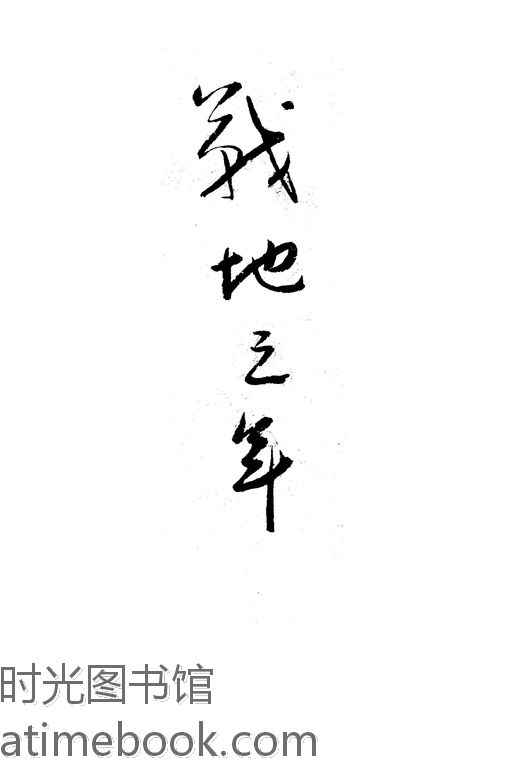 战地三年
时光图书馆
atimebook.com